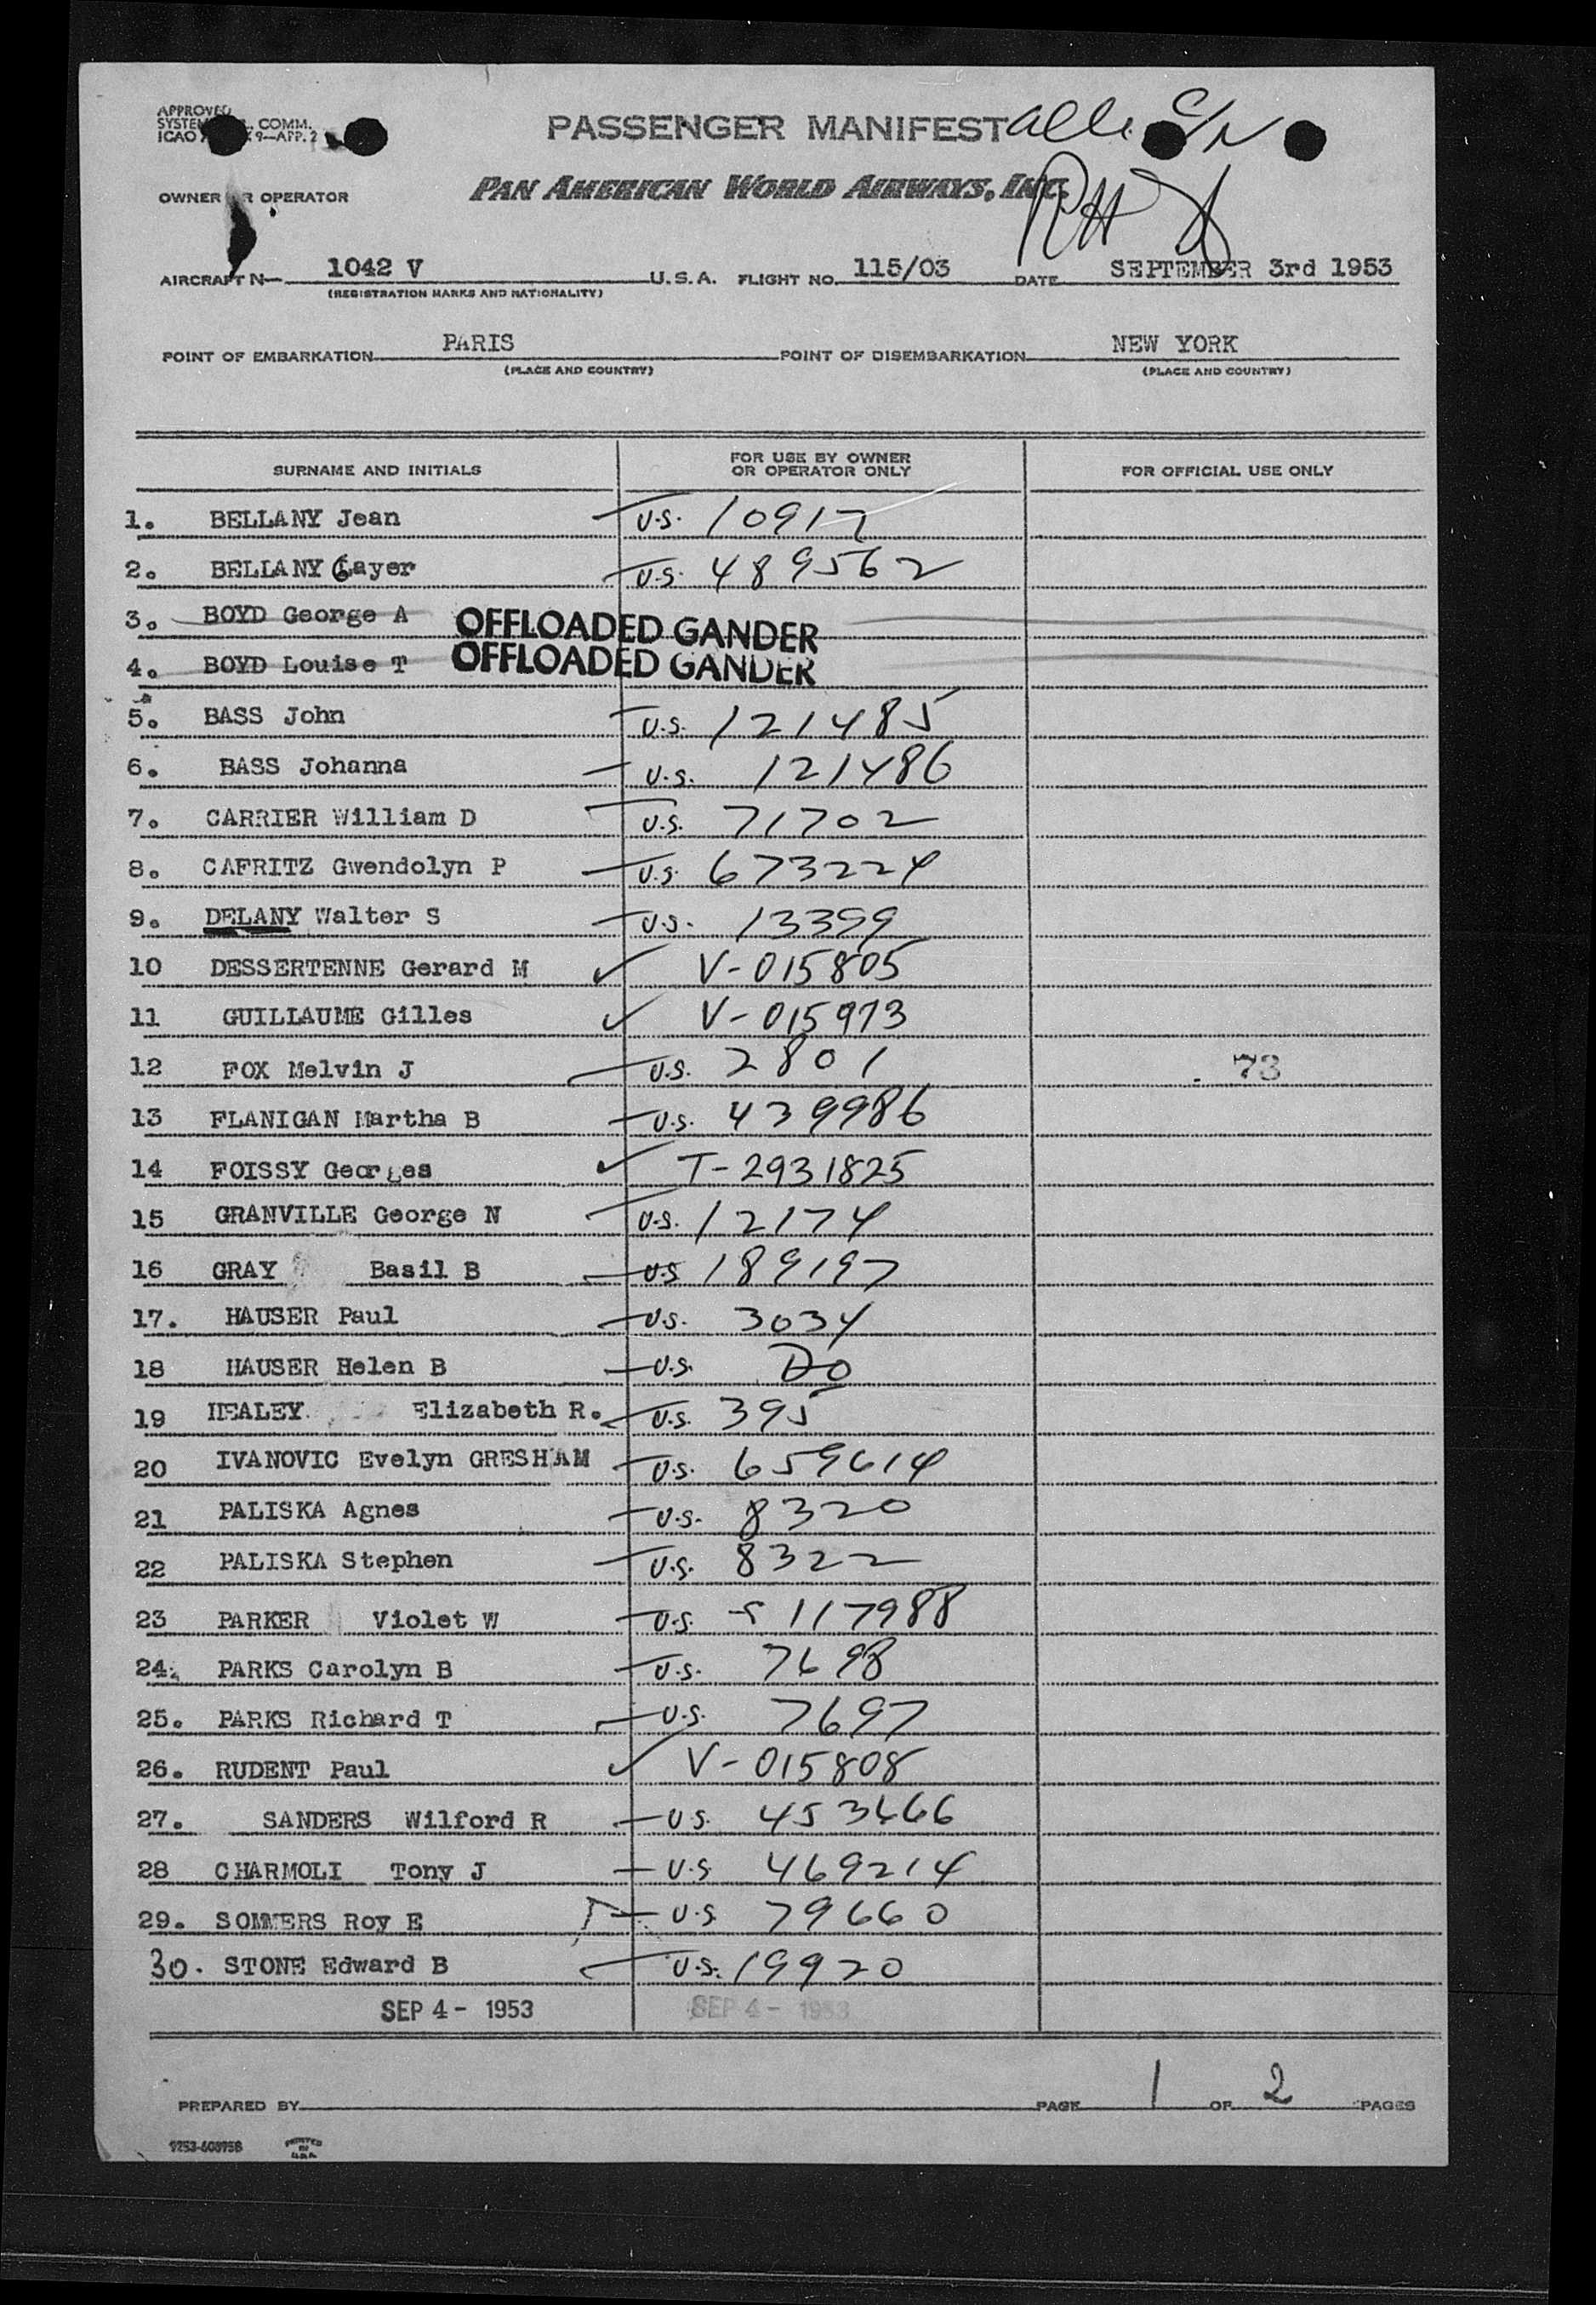 APPROVED
SYSTEM COMM.
ICAO 9—APP. 2
PASSENGER MANIFEST
OWNER OR OPERATOR PAN AMERICAN WORLD AIRWAYS, INC.
AIRCRAFT N— 1042 V U.S.A. FLIGHT NO. 115/03 DATE SEPTEMBER 3rd 1953
(REGISTRATION MARKS AND NATIONALITY)
POINT OF EMBARKATION PARIS POINT OF DISEMBARKATION NEW YORK
(PLACE AND COUNTRY) (PLACE AND COUNTRY)
SURNAME AND INITIALS FOR USE BY OWNER OR OPERATOR ONLY FOR OFFICIAL USE ONLY
1. BELLANY Jean U.S. 10917
2. BELLANY Gayer U.S. 489562
3. BOYD George A OFFLOADED GANDER
4. BOYD Louise T OFFLOADED GANDER
5. BASS John U.S. 121485
6. BASS Johanna U.S. 121486
7. CARRIER William D U.S. 71702
8. CAFRITZ Gwendolyn P U.S. 673224
9. DELANY Walter S U.S. 13399
10 DESSERTENNE Gerard M ✓ V-015805
11 GUILLAUME Gilles ✓ V-015973
12 FOX Melvin J U.S. 2801 73
13 FLANIGAN Martha B U.S. 439986
14 FOISSY Georges ✓ T-2931825
15 GRANVILLE George N U.S. 12174
16 GRAY Basil B U.S 189197
17. HAUSER Paul U.S. 3034
18 HAUSER Helen B U.S. Do
19 HEALEY Elizabeth R. U.S. 395
20 IVANOVIC Evelyn GRESHAM U.S. 659614
21 PALISKA Agnes U.S. 8320
22 PALISKA Stephen U.S. 8322
23 PARKER Violet W U.S. S 117988
24. PARKS Carolyn B U.S. 7698
25. PARKS Richard T U.S. 7697
26. RUDENT Paul ✓ V-015808
27. SANDERS Wilford R U.S. 453666
28 CHARMOLI Tony J U.S 469214
29. SOMMERS Roy E U.S 79660
30. STONE Edward B U.S. 19920
SEP 4 - 1953 SEP 4 - 1953
PREPARED BY PAGE 1 OF 2 PAGES
PRINTED
IN
U.S.A.